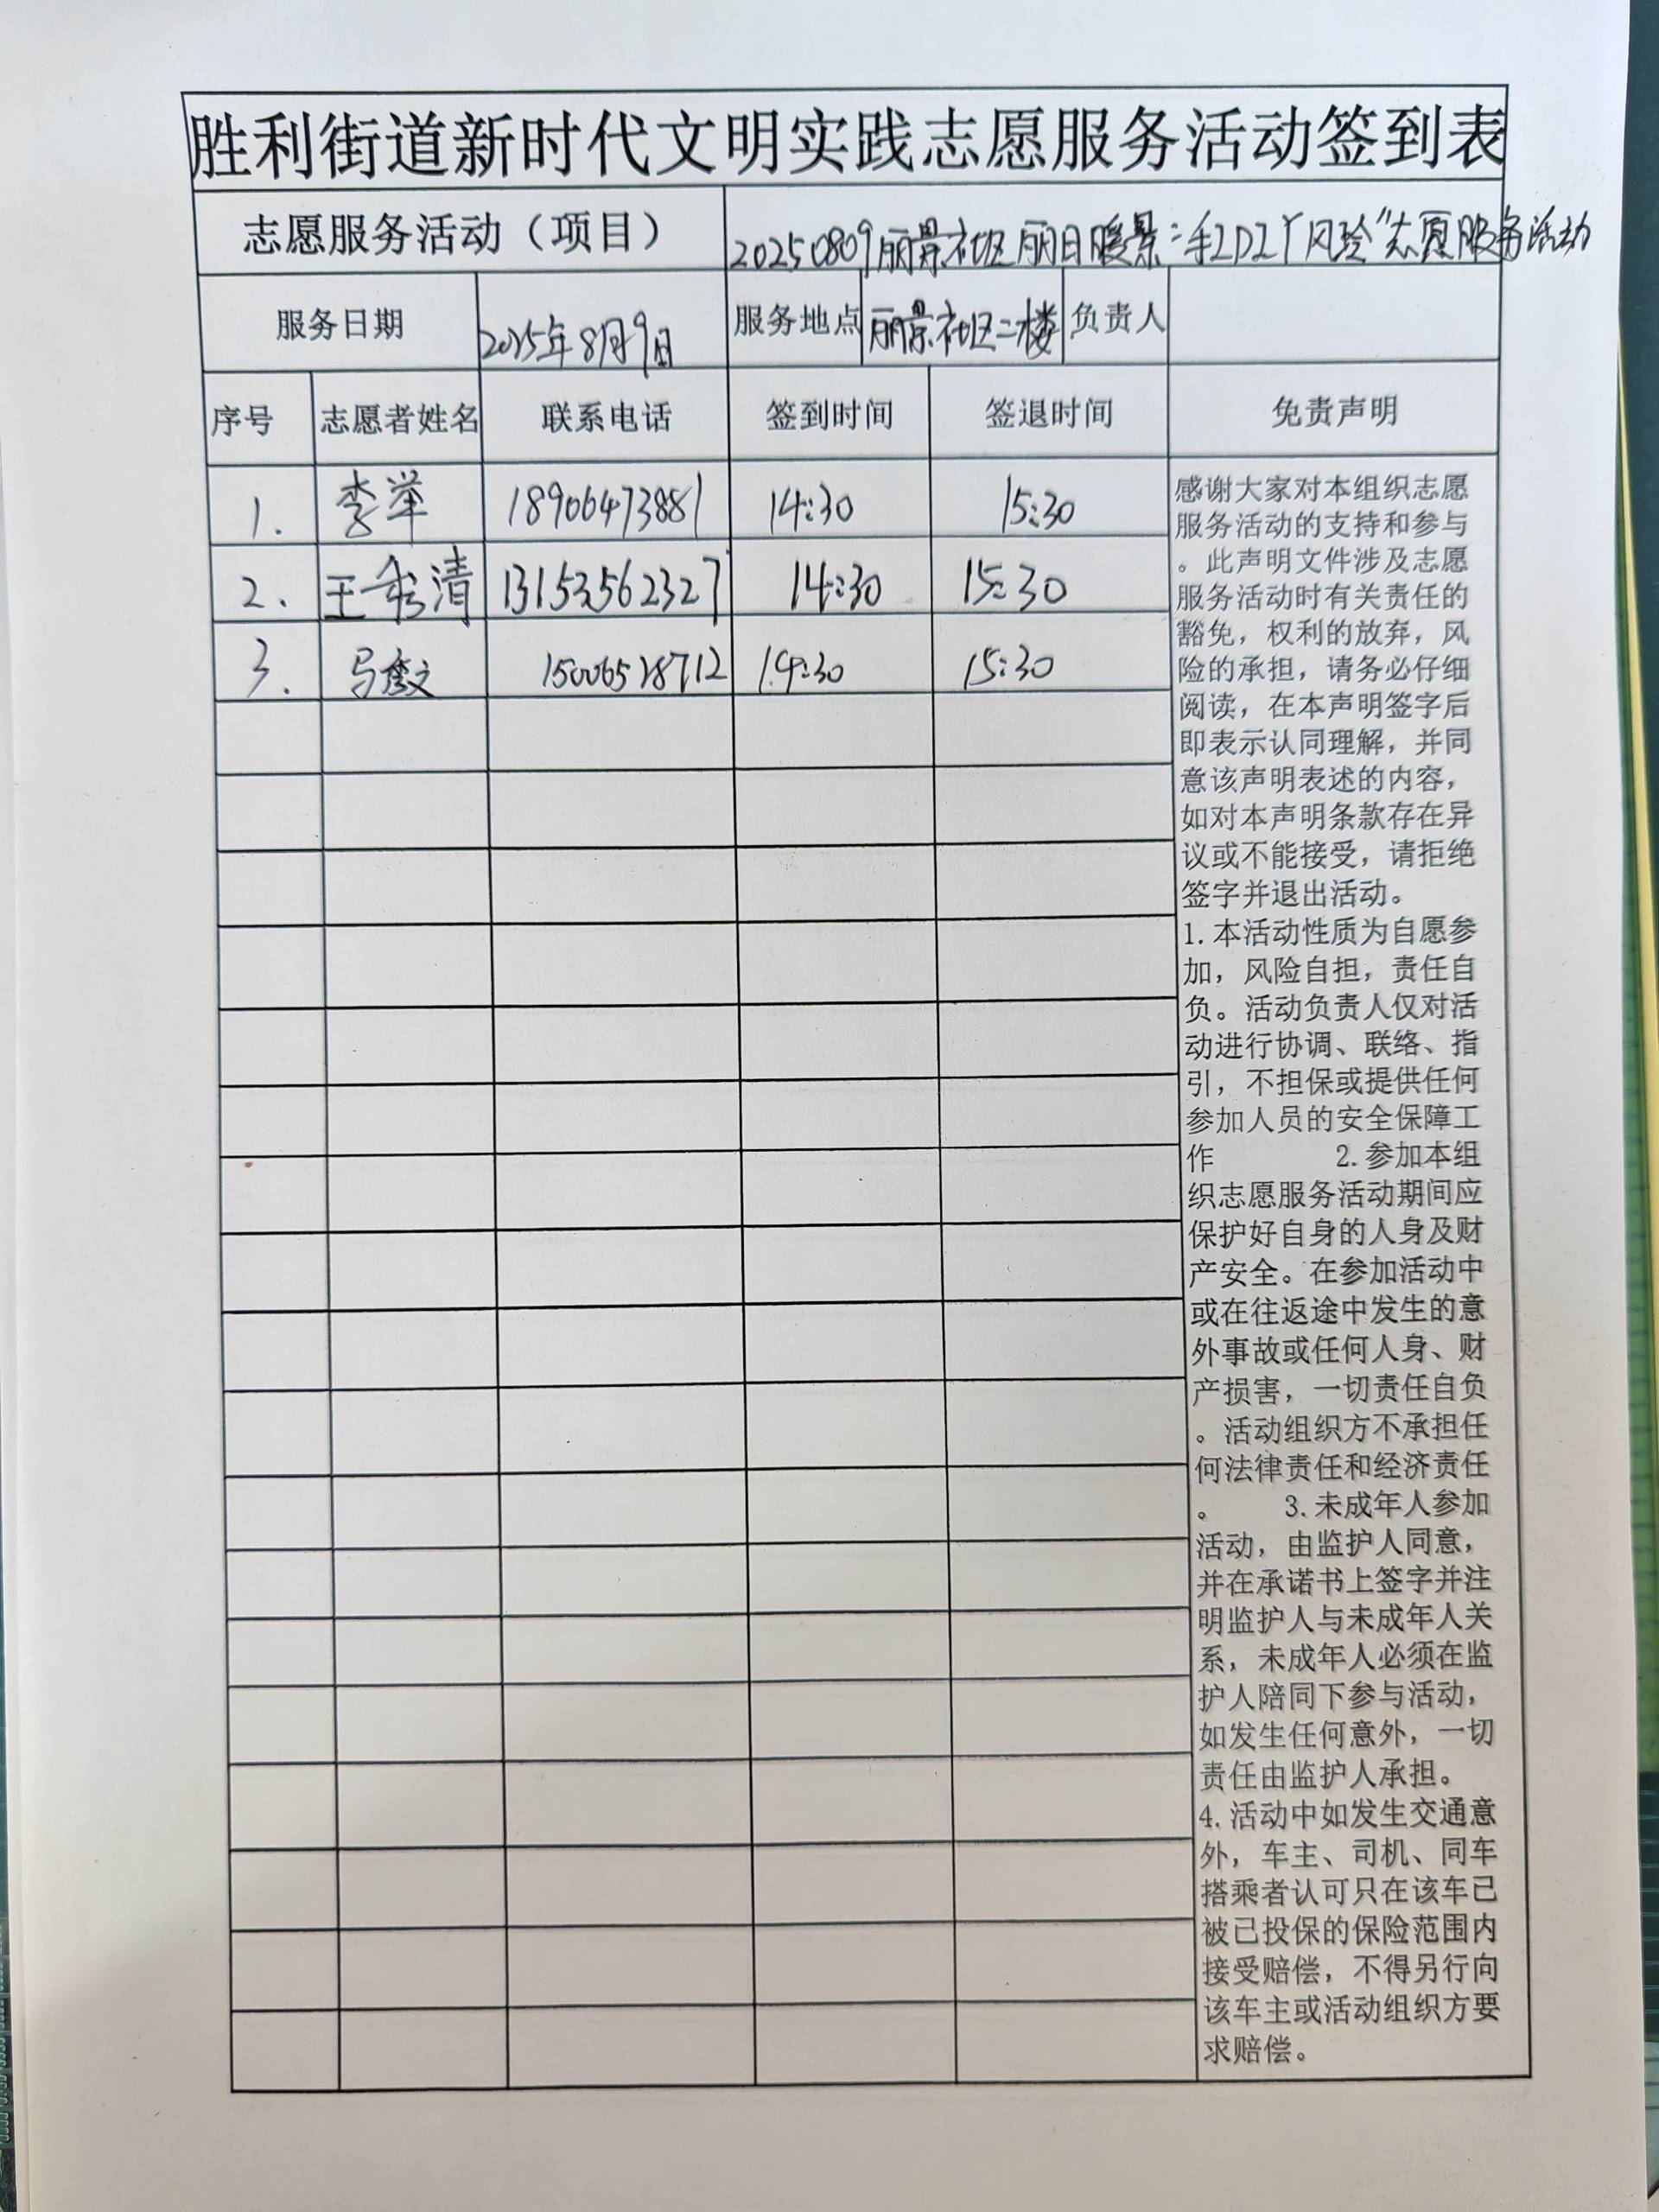 胜利街道新时代文明实践志愿服务活动签到表
志愿服务活动（项目） 20250809丽景社区丽日暖景:手工DIY风铃"志愿服务活动
服务日期 2025年8月9日 服务地点 丽景社区二楼 负责人
序号 志愿者姓名 联系电话 签到时间 签退时间 免责声明
1. 李举 18906473881 14:30 15:30
2. 王秀清 13153562327 14:30 15:30
3. 马 15006528712 14:30 15:30
感谢大家对本组织志愿
服务活动的支持和参与
。此声明文件涉及志愿
服务活动时有关责任的
豁免，权利的放弃，风
险的承担，请务必仔细
阅读，在本声明签字后
即表示认同理解，并同
意该声明表述的内容，
如对本声明条款存在异
议或不能接受，请拒绝
签字并退出活动。
1.本活动性质为自愿参
加，风险自担，责任自
负。活动负责人仅对活
动进行协调、联络、指
引，不担保或提供任何
参加人员的安全保障工
作 2.参加本组
织志愿服务活动期间应
保护好自身的人身及财
产安全。在参加活动中
或在往返途中发生的意
外事故或任何人身、财
产损害，一切责任自负
。活动组织方不承担任
何法律责任和经济责任
。 3.未成年人参加
活动，由监护人同意，
并在承诺书上签字并注
明监护人与未成年人关
系，未成年人必须在监
护人陪同下参与活动，
如发生任何意外，一切
责任由监护人承担。
4.活动中如发生交通意
外，车主、司机、同车
搭乘者认可只在该车已
被已投保的保险范围内
接受赔偿，不得另行向
该车主或活动组织方要
求赔偿。